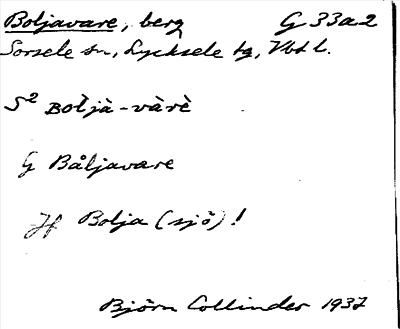 Boljavare, berg G 33a2
Sorsele sn., Lycksele tg., Vbtl.
S² Bolˈjà-vàrè
G Båljavare
Jf Bolja (sjö)!
Björn Collinder 1937